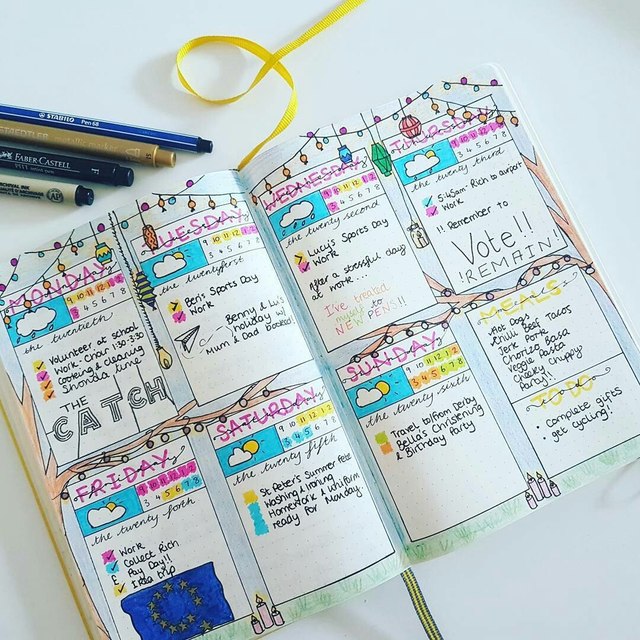 STABILO Pen 68
FABER-CASTELL
PITT artist pen
MONDAY
9 10 11 12 1 2
3 4 5 6 7 8
the twentieth
Volunteer at school
Work-Chair 1:30-3:30
Cooking & cleaning
Shonda time
THE
CATCH
TUESDAY
9 10 11 12 1 2
3 4 5 6 7 8
the twentyfirst
Ben's Sports Day
Work
Benny & Lu's
holiday w/
Mum & Dad booked!
WEDNESDAY
9 10 11 12 1 2
3 4 5 6 7 8
the twenty second
Lucy's Sports Day
Work
After a stressful day
at work...
I've treated
myself to
NEW PENS!!
THURSDAY
9 10 11 12 1 2
3 4 5 6 7 8
the twenty third
5:45am Rich to airport
Work
!! Remember to
Vote!!
!REMAIN!
FRIDAY
9 10 11 12 1 2
3 4 5 6 7 8
the twenty forth
Work
Collect Rich
£ Pay Day!!
Ikea trip
SATURDAY
9 10 11 12 1 2
3 4 5 6 7 8
the twenty fifth
St Peter's Summer Fete
Washing & Ironing
Homework & uniform
ready for Monday
SUNDAY
9 10 11 12 1 2
3 4 5 6 7 8
the twenty sixth
Travel to/from Derby
Bella's Christening
& Birthday Party
MEALS
Hot Dogs
Chilli Beef Tacos
Jerk Pork
Chorizo Basa
Veggie Pasta
Chicky Chippy
Party!!
TO DO
Complete gifts
get cycling!!